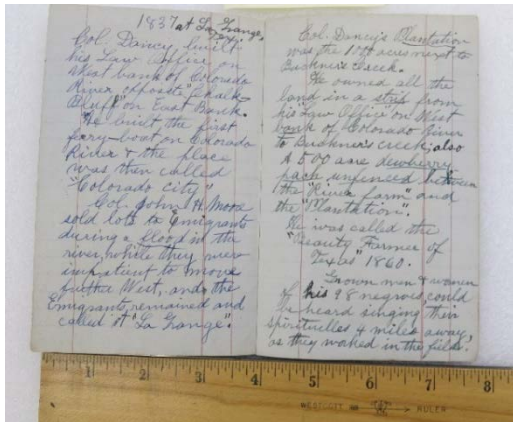 1837 at La Grange,
Tex.
Col. Dancy built
his Law Office on
West bank of Colorado
River opposite "Chalk-
Bluff" on East Bank.
He built the first
ferry-boat on Colorado
River & the place
was then called
"Colorado City"
Col. John H Moore
sold lots to Emigrants
during a flood in the
river, while they were
impatient to move
further West, and the
Emigrants, remained and
called it "La Grange".
Col. Dancy's Plantation
was the 1000 acres next to
Buckner's Creek.
He owned all the
land in a strip from
his "Law Office" on West
bank of Colorado River
to Buckner's creek; also
A 500 acre dewberry
pach unfinced between
the "River farm" and
the "Plantation".
He was called the
"Beauty Farmer of
Texas" 1860.
Grown men & women
of his 98 negroes, could
be heard singing their
spirituelles 4 miles away,
as they worked in the fields.
1 2 3 4 5 6 7 8
WESTCOTT RULER